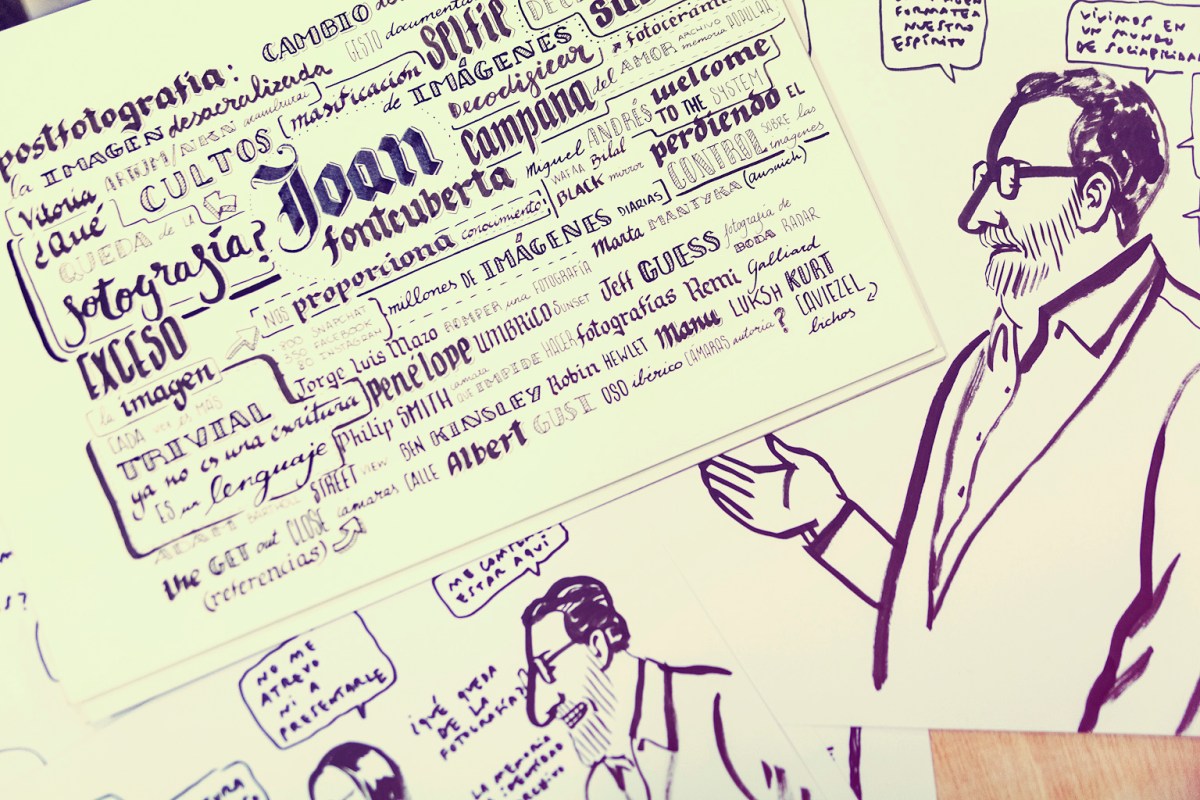 CAMBIO
GESTO documental
Selfie
postfotografía:
la IMAGEN desacralizada
masificación de IMÁGENES
Decodificar
fotocerámica
ARCHIVO POPULAR
memoria
Vitoria
CULTOS
Joan
fontcuberta
campana del AMOR
welcome
TO THE SYSTEM
¿qué
QUEDA de LA
fotografía?
Miguel ANDRÉS
WAFAA Bilal
BLACK mirror
perdiendo EL
CONTROL SOBRE las
imágenes
EXCESO
NOS proporciona conocimiento?
millones DE IMÁGENES DIARIAS
SNAPCHAT
FACEBOOK
INSTAGRAM
Marta MANTYKA
la imagen
CADA vez es MÁS
TRIVIAL
ya no es una escritura
ES un lenguaje
Jorge Luis Mazo ROMPER una FOTOGRAFÍA
Jeff GUESS fotografía de
BODA RADAR
penélope UMBRICO SUNSET
Philip SMITH cámara
QUE IMPIDE HACER fotografías Remi Galliard
STREET VIEW BEN KINSLEY Robin HEWLET Manu LUKSH KURT
CAVIEZEL
the GET out CLOSE cámaras CALLE Albert GUSI OSO ibérico CÁMARAS autoría? bichos
(referencias)
FORMATEA
NUESTRO
ESPÍRITU
VIVIMOS EN
UN MUNDO
ESTAR AQUÍ
NO ME
ATREVO
NI A
PRESENTARLE
¿QUÉ QUEDA
DE LA
FOTOGRAFÍA?
LA MEMORIA